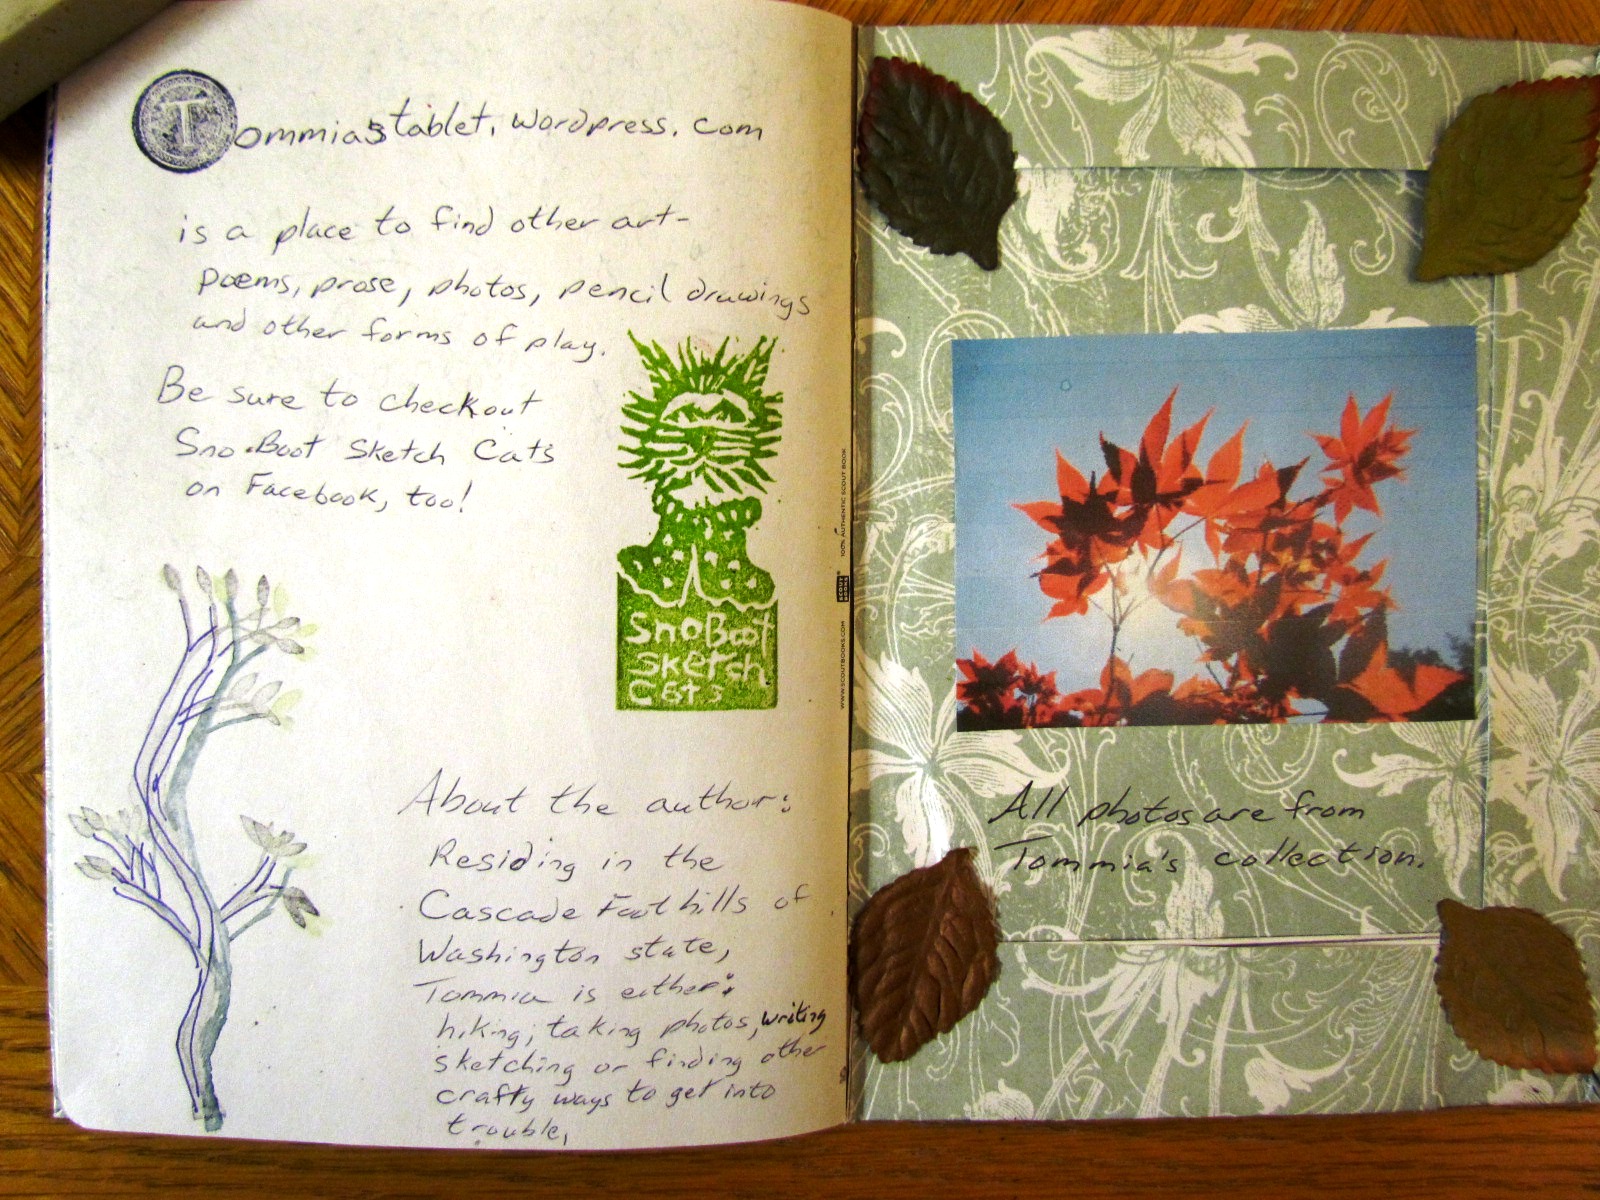 Tommiastablet.wordpress.com
is a place to find other art-
poems, prose, photos, pencil drawings
and other forms of play.
Be sure to checkout
Sno.Boot Sketch Cats
on Facebook, too!
SnoBoot
Sketch
Cats
About the author:
Residing in the
Cascade Foothills of
Washington state,
Tommia is either:
hiking; taking photos, writing
sketching or finding other
crafty ways to get into
trouble.
WWW.SCOUTBOOKS.COM SCOUT BOOKS 100% AUTHENTIC SCOUT BOOK
All photos are from
Tommia's collection.